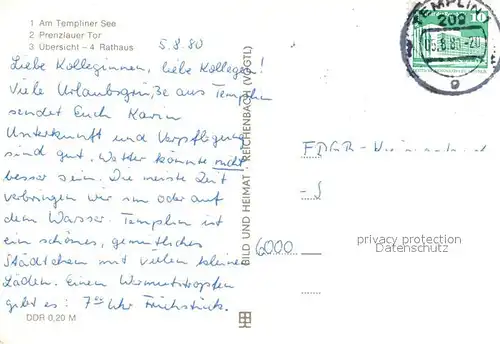 1 Am Templiner See
2 Prenzlauer Tor
3 Übersicht – 4 Rathaus
5.8.80
Liebe Kolleginnen, liebe Kollegen!
Viele Urlaubsgrüße aus Templin
sendet Euch Karin
Unterkunft und Verpflegung
sind gut. Wetter könnte nicht
besser sein. Die meiste Zeit
verbringen wir im oder auf
dem Wasser. Templin ist
ein schönes, gemütliches
Städtchen mit vielen kleinen
Läden. Einen Wermutstropfen
gibt es: 7⁰⁰ Uhr Frühstück.
DDR 0,20 M
BILD UND HEIMAT · REICHENBACH (VOGTL)
TEMPLIN
209
05.8.80-20
g
10
FDGB-
6000
privacy protection
Datenschutz